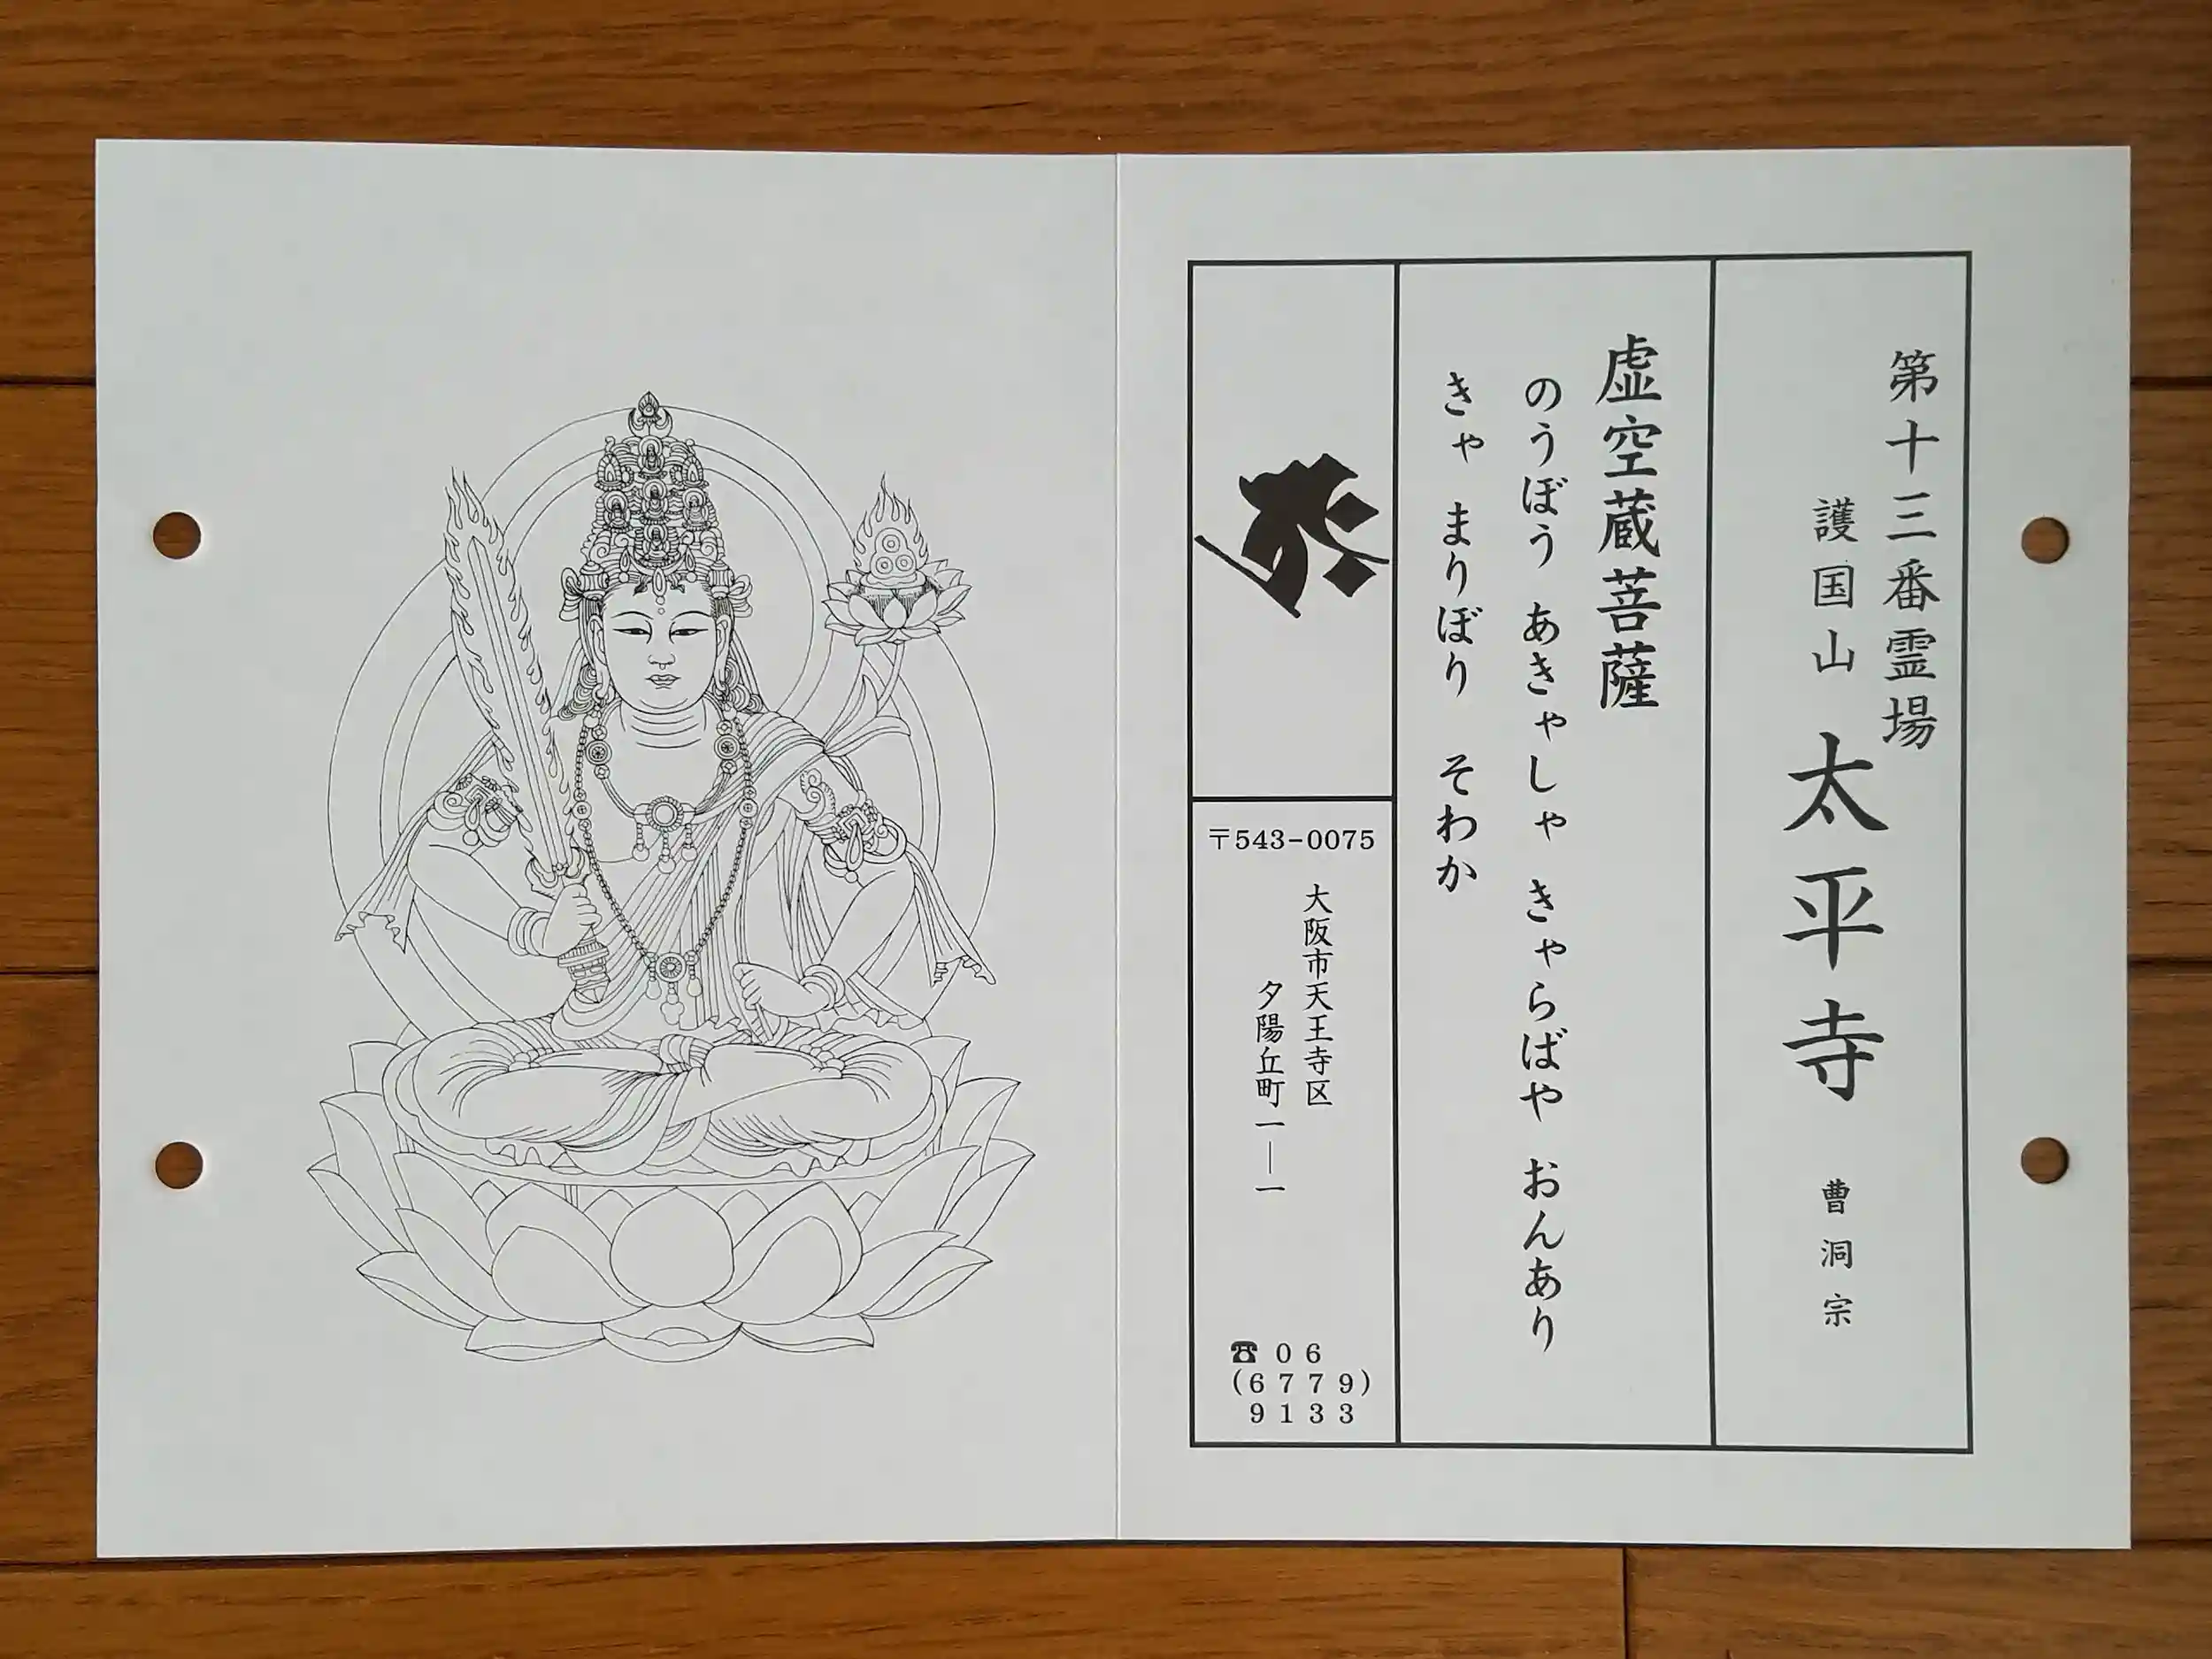 第十三番霊場
護国山 太平寺 曹洞宗
虚空蔵菩薩
のうぼう あきゃしゃ きゃらばや おんあり
きゃ まりぼり そわか
〒543-0075
大阪市天王寺区
夕陽丘町一―一
☎06
(6779)
9133